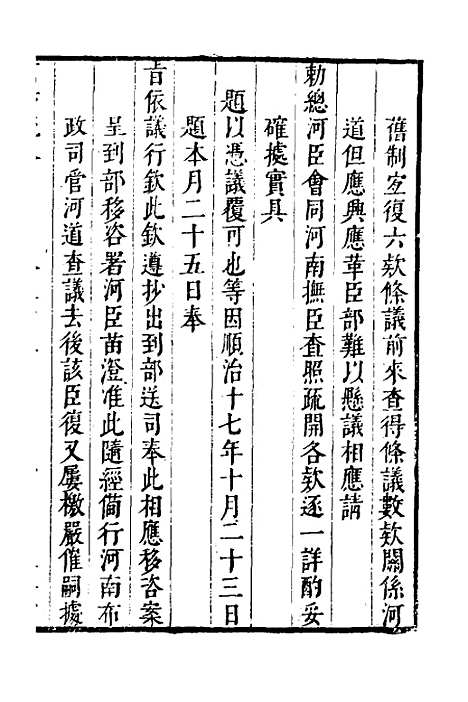 舊制宜復六欵條議前來查得條議數欵關係河
道但應興應革臣部難以懸議相應請
勅總河臣會同河南撫臣查照疏開各欵逐一詳酌妥
確據實具
題以憑議覆可也等因順治十七年十月二十三日
題本月二十五日奉
旨依議行欽此欽遵抄出到部送司奉此相應移咨案
呈到部移咨署河臣苗澄准此隨經備行河南布
政司管河道查議去後該臣復又屢檄嚴催嗣據